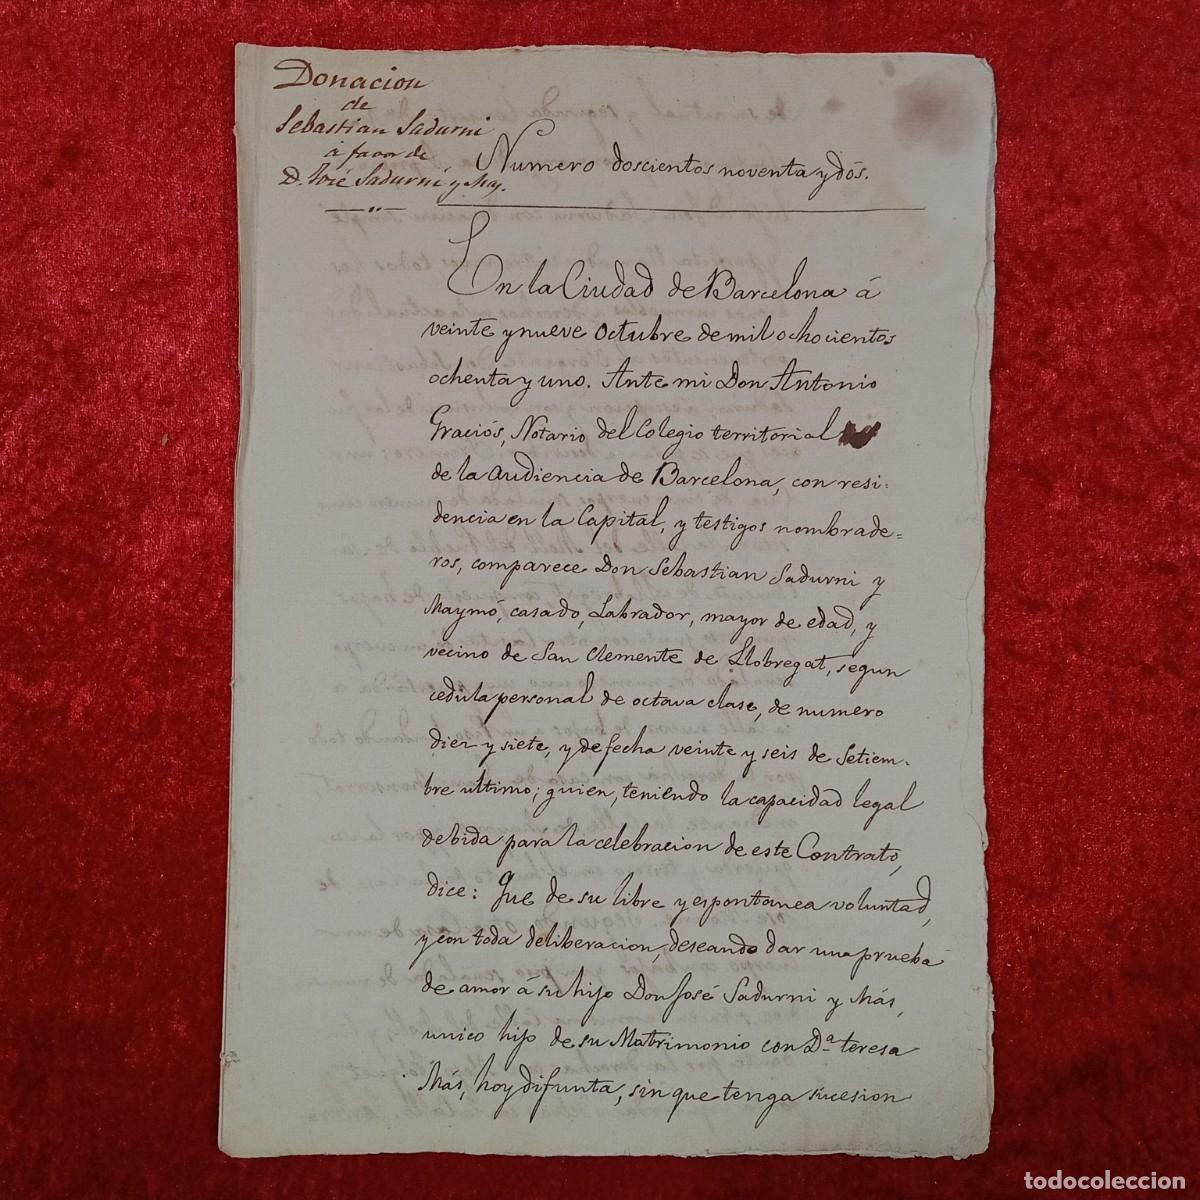 Donacion
de
Sebastian Sadurni
á favor de
D. José Sadurní y Más.
Numero doscientos noventa y dós.
En la Ciudad de Barcelona á
veinte y nueve Octubre de mil ochocientos
ochenta y uno. Ante mi Don Antonio
Graciós, Notario del Colegio territorial
de la Audiencia de Barcelona, con resi-
dencia en la Capital, y testigos nombrade=
ros, comparece Don Sebastian Sadurni y
Maymó, casado, Labrador, mayor de edad, y
vecino de San Clemente de Llobregat, segun
cedula personal de octava clase, de numero
diez y siete, y de fecha veinte y seis de Setiem-
bre ultimo; quien, teniendo la capacidad legal
debida para la celebracion de este Contrato,
dice: Que de su libre y espontanea voluntad,
y con toda deliberacion, deseando dar una prueba
de amor á su hijo Don José Sadurni y Más,
unico hijo de su Matrimonio con Dª teresa
Más, hoy difunta, sin que tenga sucesion
todocoleccion